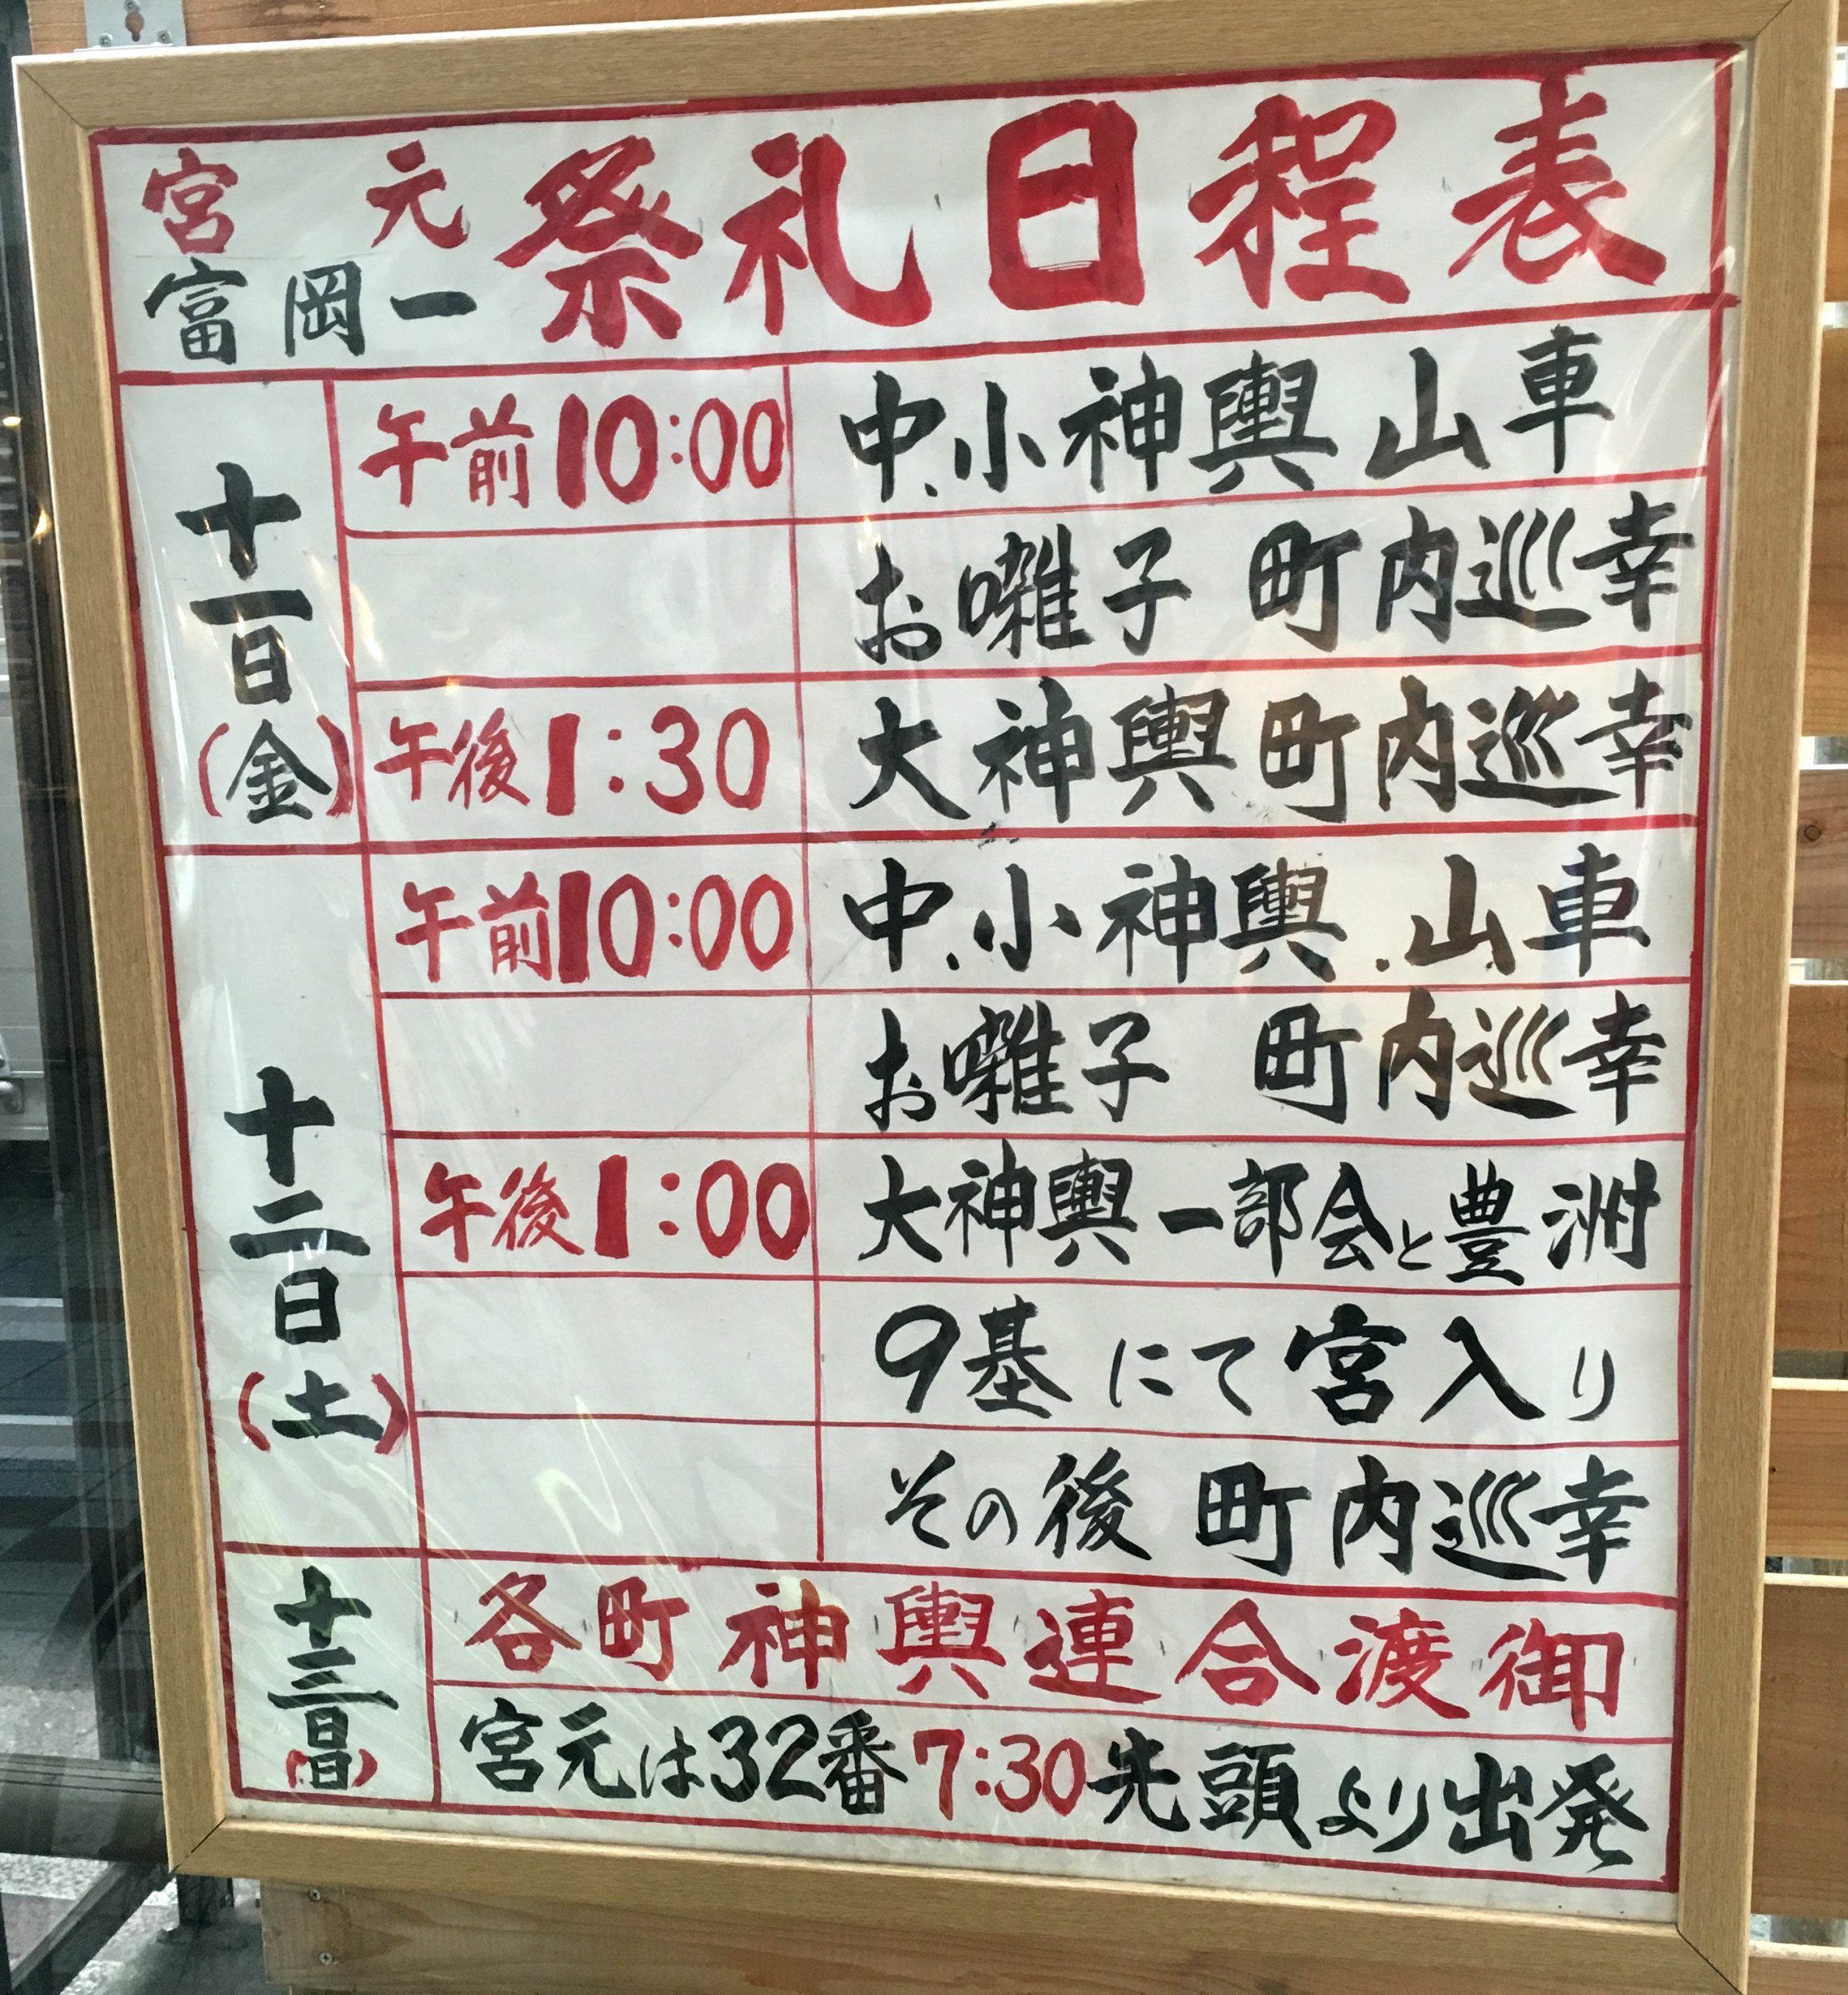 宮元
富岡一
祭礼日程表
十一日(金)
午前10:00
中、小神輿山車
お囃子 町内巡幸
午後1:30
大神輿町内巡幸
十二日(土)
午前10:00
中、小神輿、山車
お囃子 町内巡幸
午後1:00
大神輿一部会と豊洲
9基にて宮入り
その後 町内巡幸
十三日(日)
各町神輿連合渡御
宮元は32番7:30先頭より出発